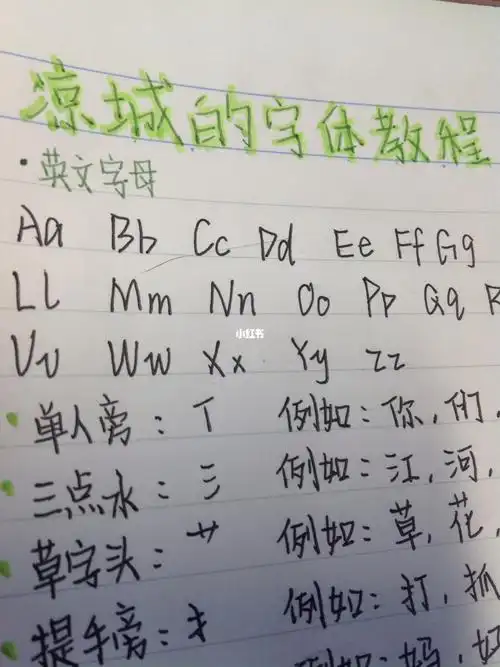 凉城的字体教程
·英文字母
Aa Bb Cc Dd Ee Ff Gg
Ll Mm Nn Oo Pp Qq R
Vv Ww Xx Yy Zz
小红书
·单人旁：亻 例如：你，们，
·三点水：氵 例如：江，河，
·草字头：艹 例如：草，花，
·提手旁：扌 例如：打，抓
例如：妈，好